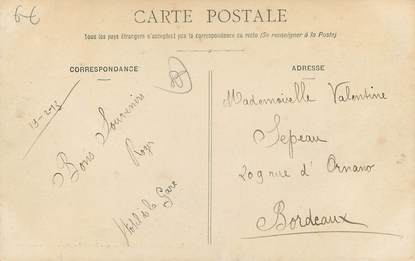 6€
CARTE POSTALE
Tous les pays étrangers n'acceptent pas la correspondance au recto (Se renseigner à la Poste)
CORRESPONDANCE
13-2-13
Bons Souvenirs
Roger
Hotel de la Gare
ADRESSE
Mademoiselle Valentine
Sepeau
209 rue d'Ornano
Bordeaux